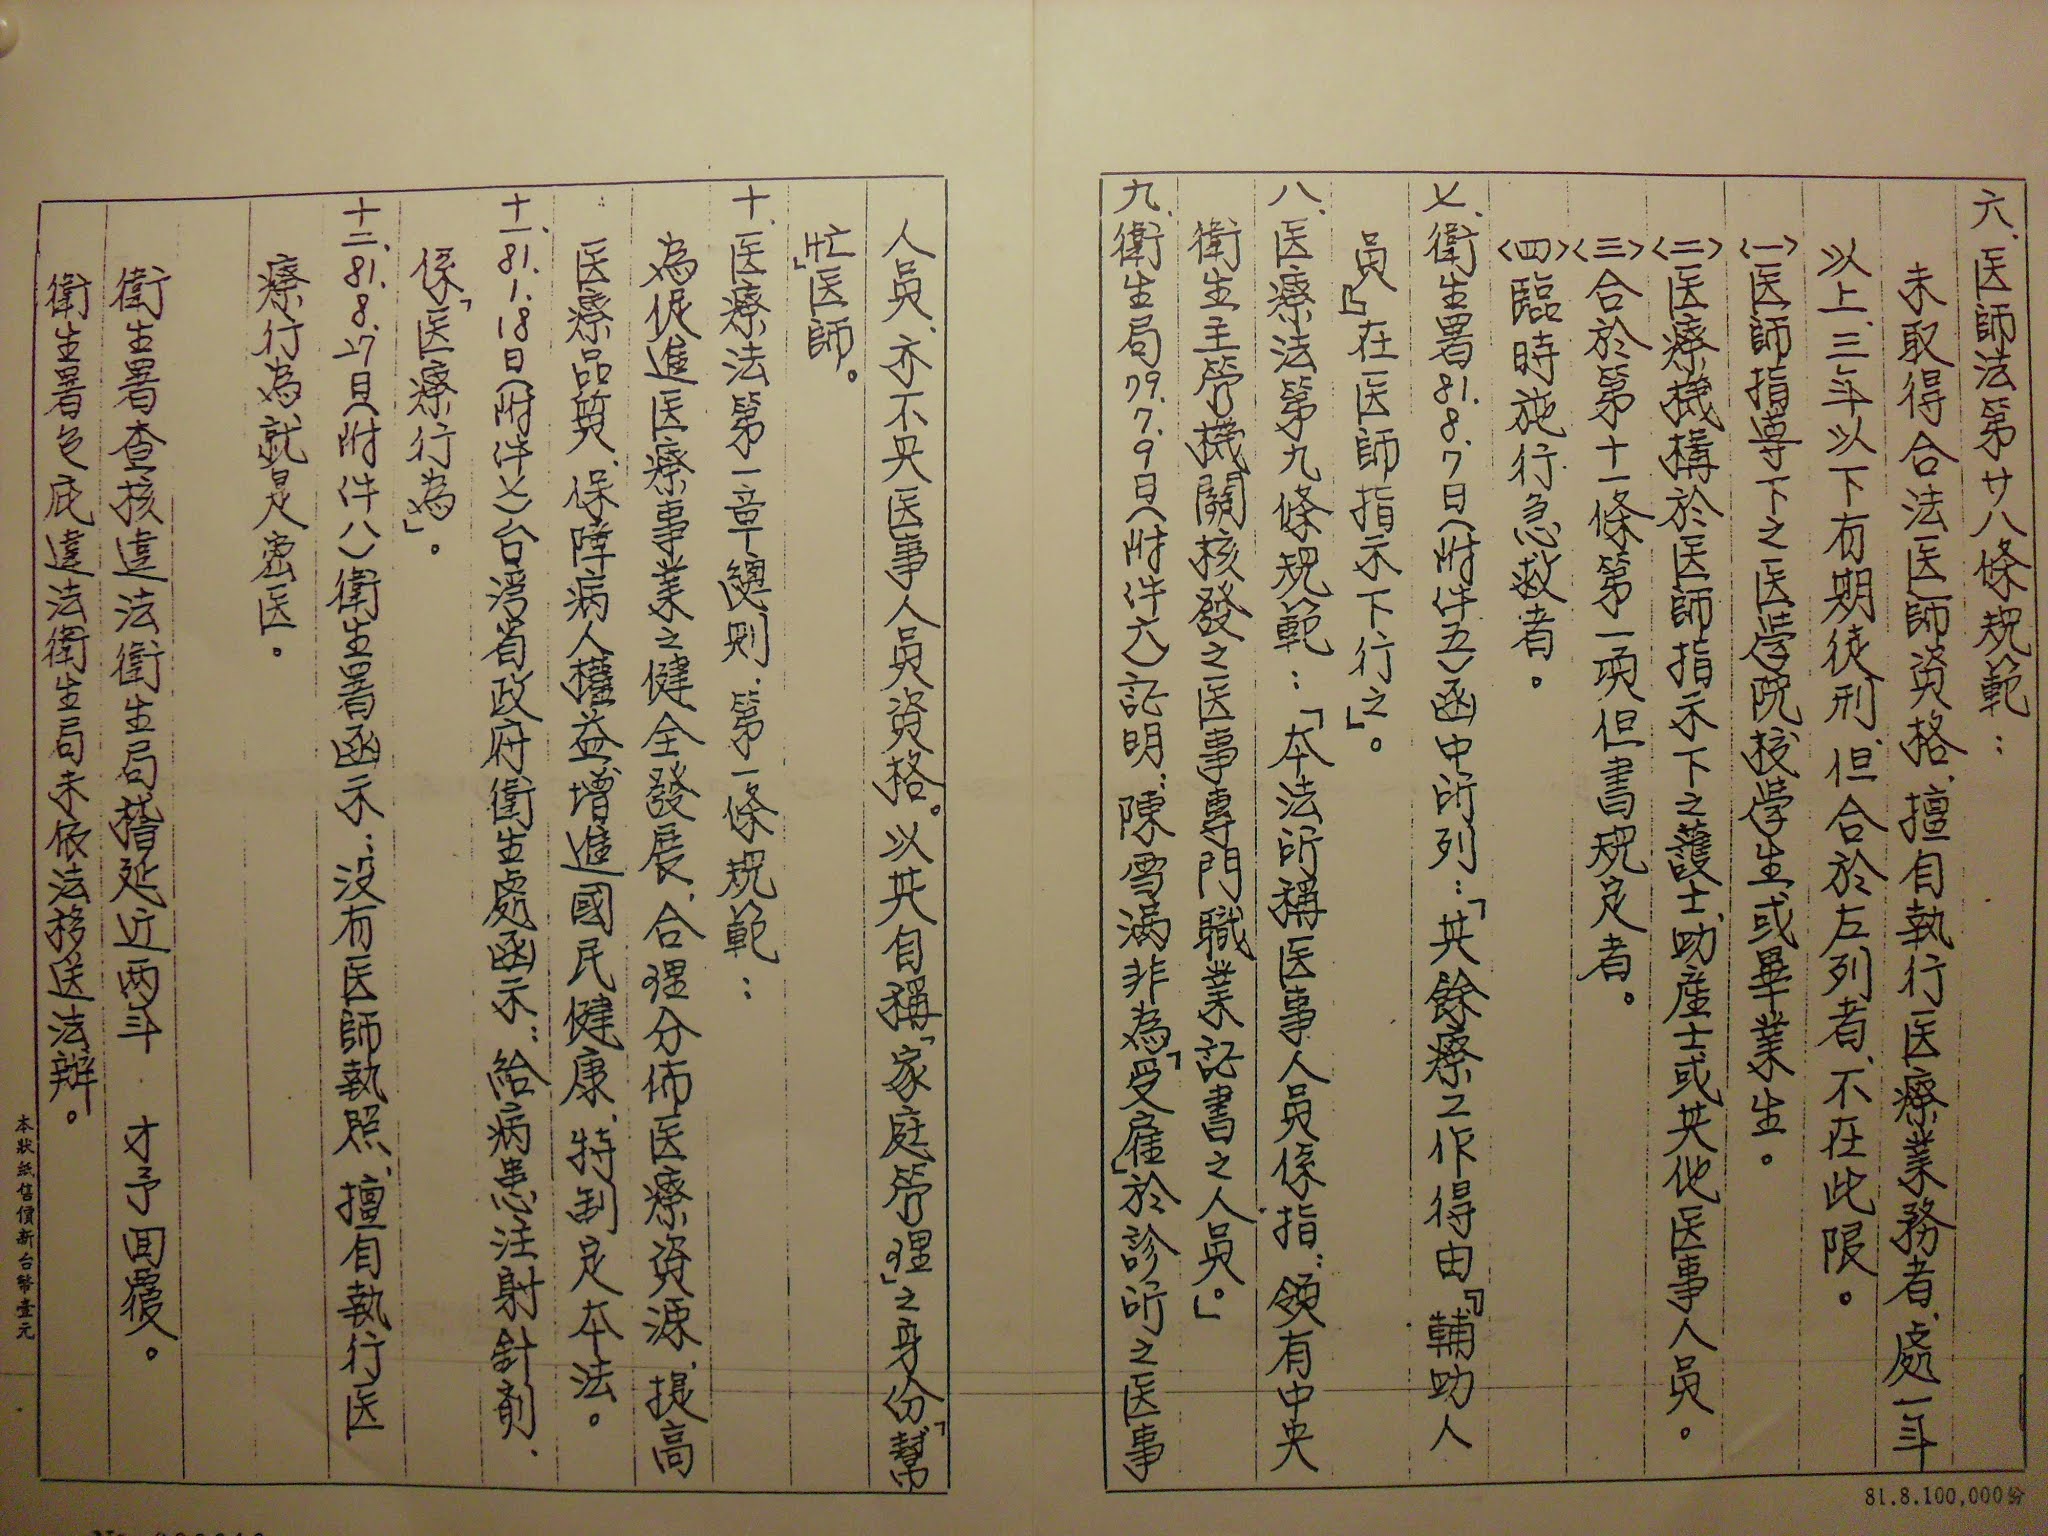 六、医師法第廿八條規範：
未取得合法医師資格、擅自執行医療業務者、處一年
以上、三年以下有期徒刑、但合於左列者、不在此限。
〈一〉医師指導下之医學院校學生、或畢業生。
〈二〉医療機構於医師指示下之護士、助產士或其他医事人員。
〈三〉合於第十一條第一項但書規定者。
〈四〉臨時施行急救者。
七、衛生署81.8.7日(附件五)函中所列：「其餘療工作得由『輔助人
員』在医師指示下行之」。
八、医療法第九條規範：「本法所稱医事人員係指：領有中央
衛生主管機關核發之医事專門職業証書之人員。」
九、衛生局79.7.9日(附件六)証明：陳雪満非為「受雇」於診所之医事
人員、亦不具医事人員資格。以其自稱「家庭管理」之身份「幫
忙」医師。
十、医療法第一章總則、第一條規範：
為促進医療事業之健全發展、合理分佈医療資源、提高
医療品質、保障病人權益、增進國民健康、特制定本法。
十一、81.1.18日(附件七)台湾省政府衛生處函示：給病患注射針劑、
係「医療行為」。
十二、81.8.27日(附件八)衛生署函示：没有医師執照、擅自執行医
療行為就是密医。
衛生署查核違法衛生局稽延近两年、才予回覆。
衛生署包庇違法衛生局未依法移送法辦。
本狀紙售價新台幣壹元
81.8.100,000份